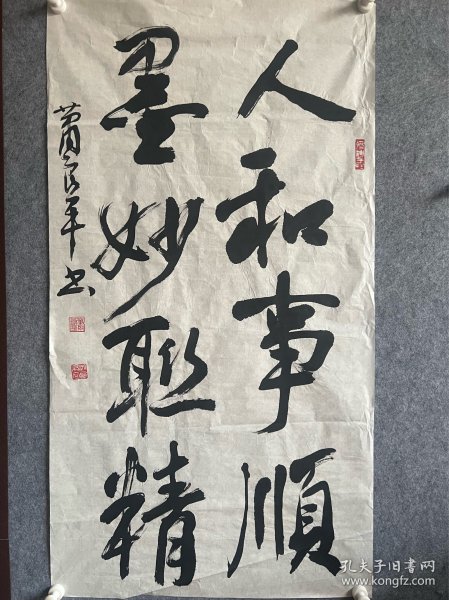 人和事順
墨妙聯精
蕭良平书
孔夫子旧书网
www.kongfz.com